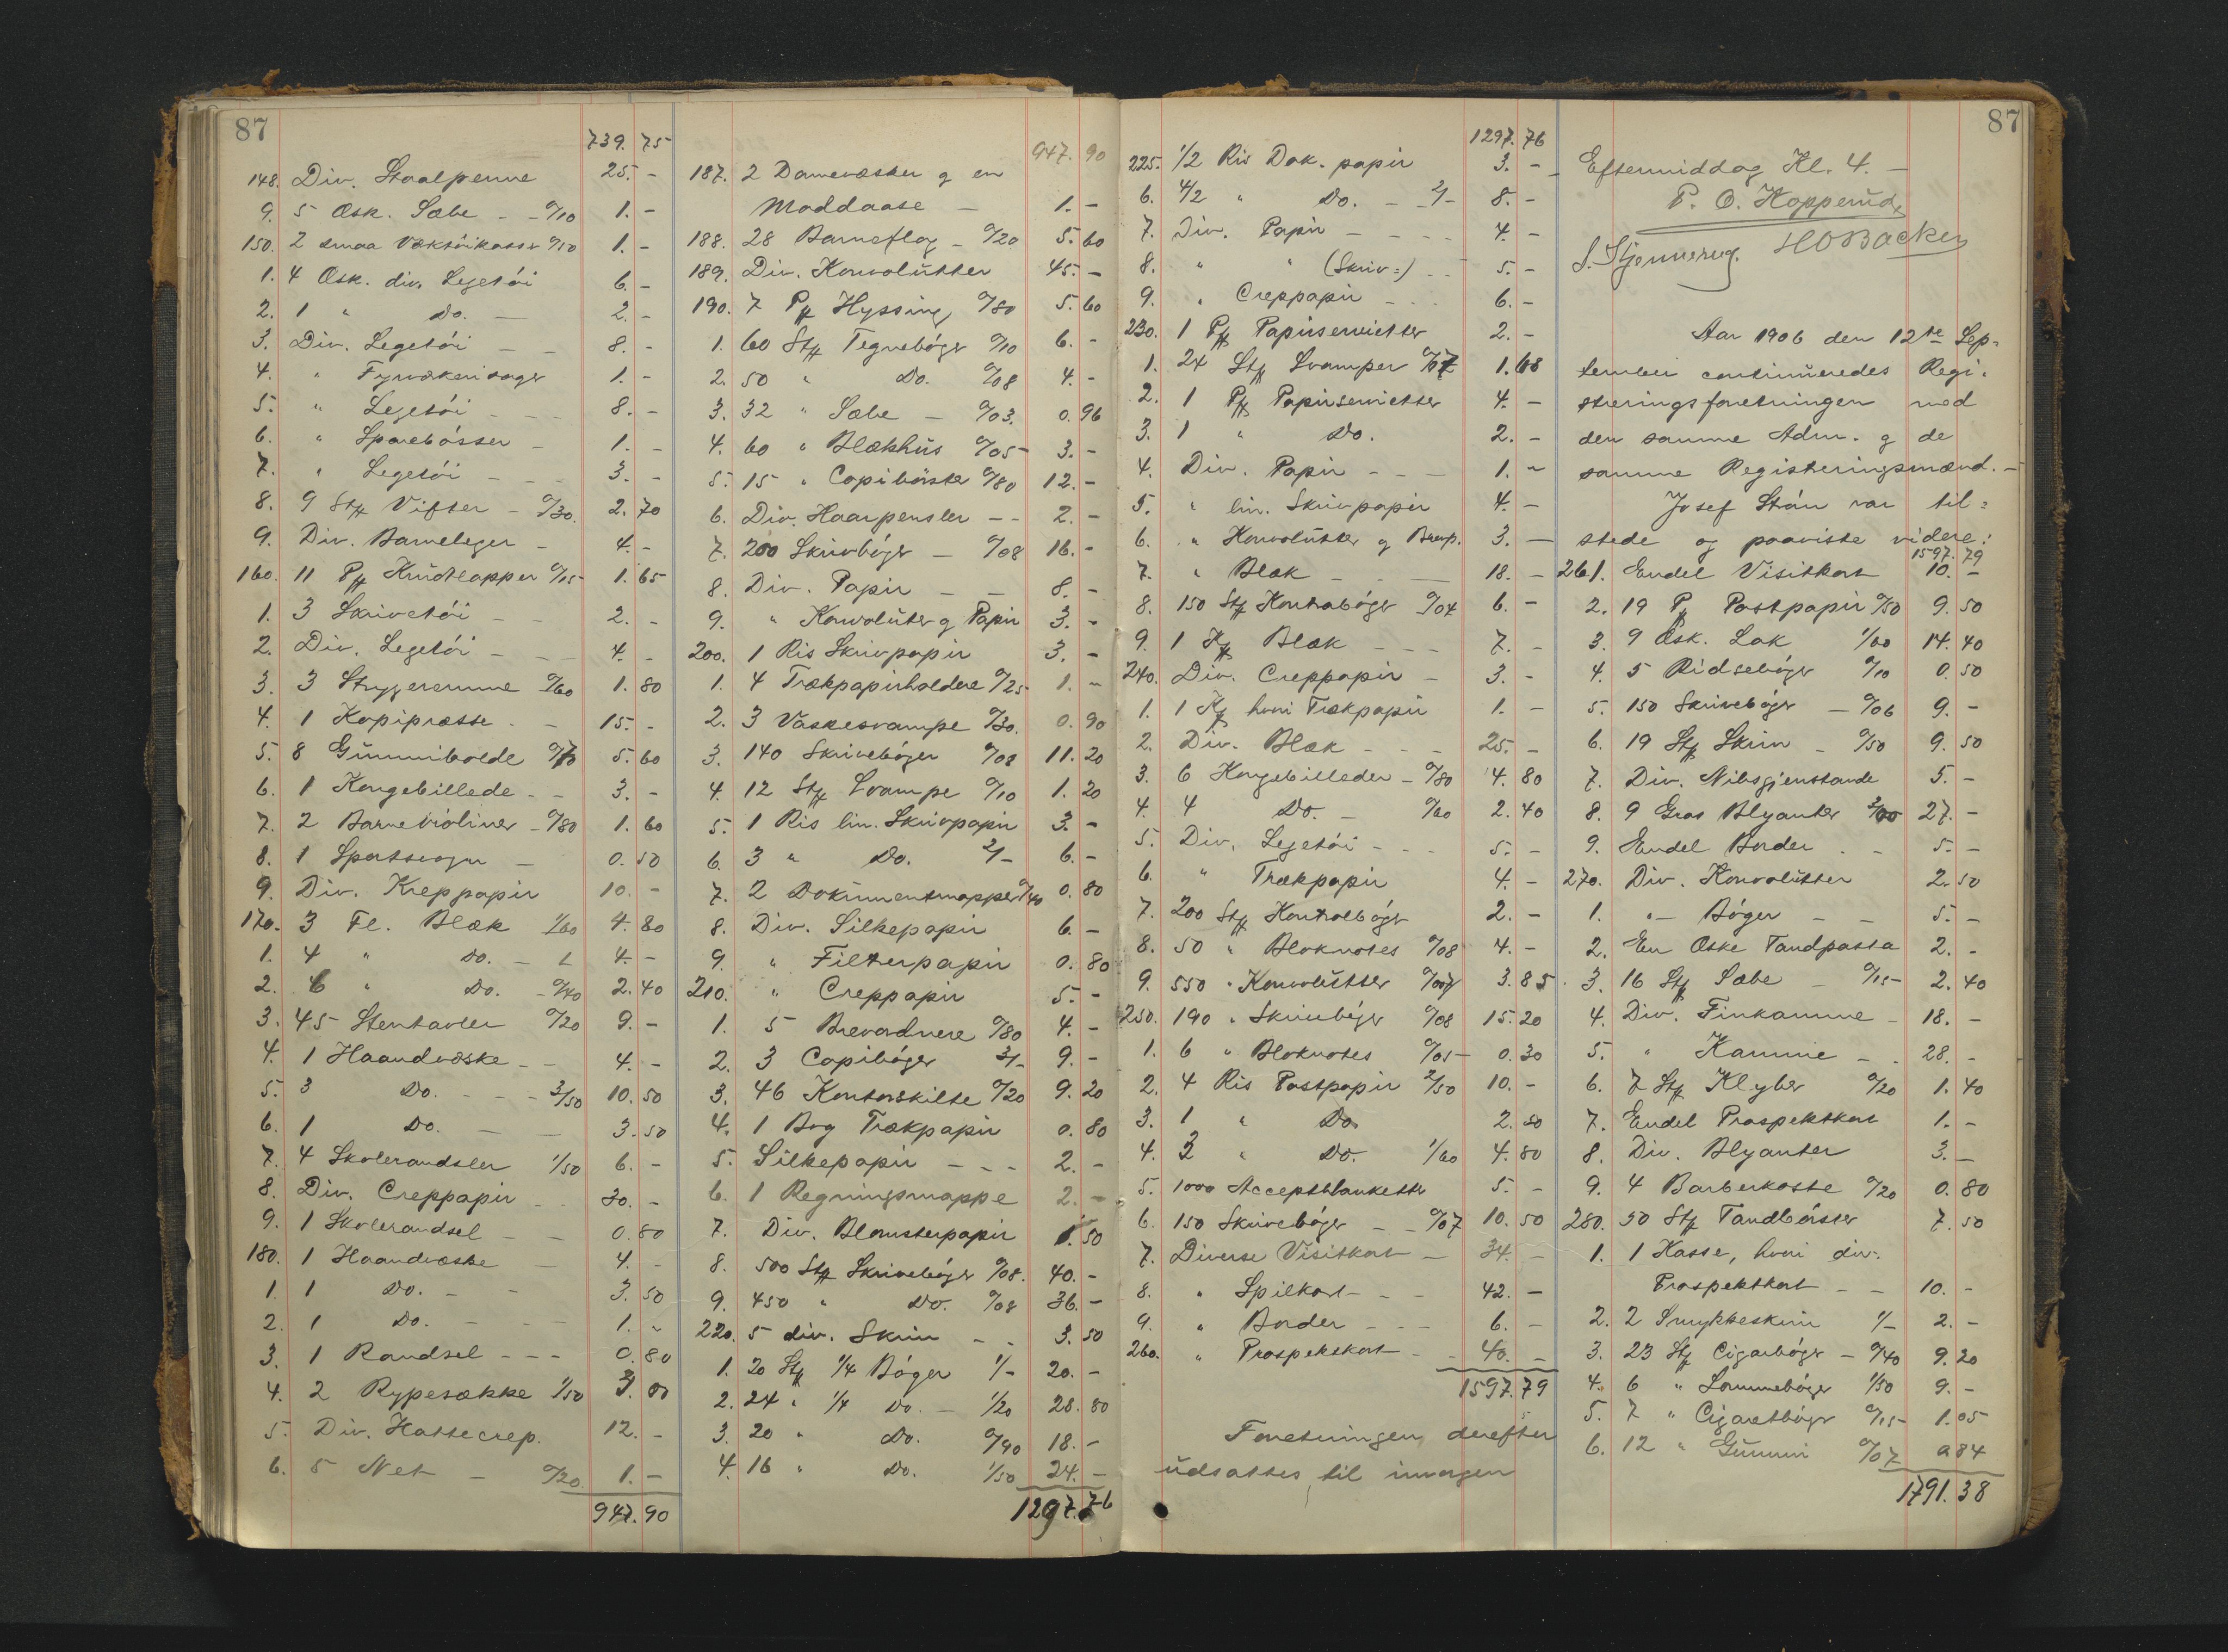 87
739. 75
148. Div. Staalpenne 25. -
9. 5 Æsk. Sæbe - - 0/10 1. -
150. 2 smaa Værktøikasser 0/50 1. -
1. 4 Æsk. div. Legetøi 6. -
2. 1 " Do. - 2. -
3. Div. Legetøi - - 8. -
4. " Fyrværkerisager 1. -
5. " Legetøi - - - 8. -
6. " Sparebøsser - 1. -
7. " Legetøi - - - 3. -
8. 9 Stk Vifter - 0/30. 2. 70
9. Div. Barneleger - 4. -
160. 11 Pk Knudtlapper 0/15 1. 65
1. 3 Skrivetøi - - 2. -
2. Div. Legetøi - - - 4. -
3. 3 Strygeremme 0/60 1. 80
4. 1 Kopipresse - - 15. -
5. 8 Gummibolde 0/70 5. 60
6. 1 Kongebillede - - 3. -
7. 2 Barnevioliner - 0/80 1. 60
8. 1 Sportsvogn - 0. 50
9. Div. Kreppapir 10. -
170. 3 Fl. Blæk 1/60 4. 80
1. 4 " Do. - 1 4. -
2. 6 " Do. - 0/40 2. 40
3. 45 Stentavler 0/20 9. -
4. 1 Haandvæske - - 4. -
5. 3 Do. - - - 3/50 10. 50
6. 1 Do. - - 3. 50
7. 4 Skolerandsler 1/50 6. -
8. Div. Creppapir - - 30. -
9. 1 Skolerandsel - - 0. 80
180. 1 Haandvæske - 4. -
1. 1 Do. - - 3. 50
2. 1 Do. - - - 1. -
3. 1 Randsel - - - 0. 80
4. 2 Rypesække 1/50 3. 00
5. Div. Hattecrep. 12. -
6. 5 Net - 0/20 1. -
947. 90
947. 90
187. 2 Damevæsker g en
Maddaase - 1. -
188. 28 Barneflag - 0/20 5. 60
189. Div. Konvolutter 45. -
190. 7 Pk Hyssing 0/80 5. 60
1. 60 Stk Tegnebøger 0/10 6. -
2. 50 " Do. 0/08 4. -
3. 32 " Sæbe - 0/03. 0. 96
4. 60 " Blækhus 0/05 3. -
5. 15 " Copibørster 0/80 12. -
6. Div. Haarpensler - - 2. -
7. 200 Skrivbøger - 0/08 16. -
8. Div. Papir - - 8. -
9. " Konvoluter g Papir 3. -
200. 1 Ris Skrivpapir 3. -
1. 4 Trækpapirholdere 0/25 1. -
2. 3 Vaskesvampe 0/30. 0. 90
3. 140 Skrivebøger 0/08 11. 20
4. 12 Stk Svampe 0/10 1. 20
5. 1 Ris lin. Skrivpapir 3. -
6. 3 " Do. 2/- 6. -
7. 2 Dokumentmapper 0/40 0. 80
8. Div. Silkepapir 6. -
9. " Filterpapir 0. 80
210. " Creppapir 5. -
1. 5 Brevordnere 0/80 4. -
2. 3 Copibøger 3/- 9. -
3. 46 Kontorskilte 0/20 9. 20
4. 1 Bog Trækpapir 0. 80
5. Silkepapir - - - 2. -
6. 1 Regningsmappe 2. -
7. Div. Blomsterpapir 1. 50
8. 500 Stk Skrivebøger 0/08. 40. -
9. 450 " Do. 0/08 36. -
220. 5 div. Skrin - - 3. 50
1. 20 Stk 1/4 Bøger 1/- 20. -
2. 24 " 1/4 Do. - 1/20 28. 80
3. 20 " Do. 0/90 18. -
4. 16 " Do. 1/50 24. -
1297. 76
1297. 76
225. 1/2 Ris Dok. papir 3. -
6. 4/2 " Do. - - 2/- 8. -
7. Div. Papir - - - - 4. -
8. " " (Skriv=) - - 5. -
9. " Creppapir - - - 6. -
230. 1 Pk Papirservietter 2. -
1. 24 Stk Svamper 0/07 1. 68
2. 1 Pk Papirservietter 4. -
3. 1 " Do. 2. -
4. Div. Papir - - - 1. -
5. " lin. Skrivpapir 4. -
6. " Konvolutter g Brevp. 3. -
7. " Blæk - - - 18. -
8. 150 Stk Kontrabøger 0/04 6. -
9. 1 Kk Blæk - - - 7. -
240. Div. Creppapir - 3. -
1. 1 Kk hvori Trækpapir 1. -
2. Div. Blæk - - - 25. -
3. 6 Kongebilleder - 0/80 4. 80
4. 4 Do. - 0/60 2. 40
5. Div. Legetøi - - - 5. -
6. " Trækpapir 4. -
7. 200 Stk Kontrolbøger 2. -
8. 50 " Bloknotes 0/08 4. -
9. 550 " Konvolutter 0/007 3. 85
250. 190 " Skrivebøger 0/08 15. 20
1. 6 " Bloknotes 0/05 0. 30
2. 4 Ris Postpapir 2/50 10. -
3. 1 " Do. 2. 80
4. 3 " Do. 1/60 4. 80
5. 1000 Acceptblanketter 5. -
6. 150 Skrivebøger - - 0/07 10. 50
7. Diverse Visitkort - 34. -
8. " Spilkort - - - 42. -
9. " Border - - - 6. -
260. " Prospektkort - - 40. -
1597. 79
Forretningen derefter
udsattes til imorgen
87
Eftermiddag Kl. 4. -
P. O. Kopperud,
S. Stjernerug. H O Backer
Aar 1906 den 12te Sep=
tember continueredes Regi=
streringsforretningen med
den samme Adm. g de
samme Registreringsmænd. -
Josef Strøm var til=
stede og paaviste videre:
1597. 79
261. Endel Visitkort 10. -
2. 19 Pk Postpapir 0/50 9. 50
3. 9 Æsk. Lak 1/60 14. 40
4. 5 Ridsebøger 0/10 0. 50
5. 150 Skrivebøger - 0/06 9. -
6. 19 Stk Skrin - 0/50 9. 50
7. Div. Nibsgjenstande 5. -
8. 9 Gros Blyanter 3/00 27. -
9. Endel Border - - 5. -
270. Div. Konvolutter 2. 50
1. " - Bøger - - 5. -
2. En Æske Tandpasta 2. -
3. 16 Stk Sæbe - 0/15 2. 40
4. Div. Finkamme - 18. -
5. " Kamme - - 28. -
6. 7 Stk Klyber 0/20 1. 40
7. Endel Prospektkort 1. -
8. Div. Blyanter 3. -
9. 4 Barberkoste 0/20 0. 80
280. 50 Stk Tandbørster 7. 50
1. 1 Kasse, hvori div.
Prospektkort - - 10. -
2. 2 Smykkeskrin 1/- 2. -
3. 23 Stk Cigarbøger - 0/40 9. 20
4. 6 " Lommebøger 1/50 9. -
5. 7 " Cigaretbøger 0/15 1. 05
6. 12 " Gummi 0/07 0. 84
1791. 38